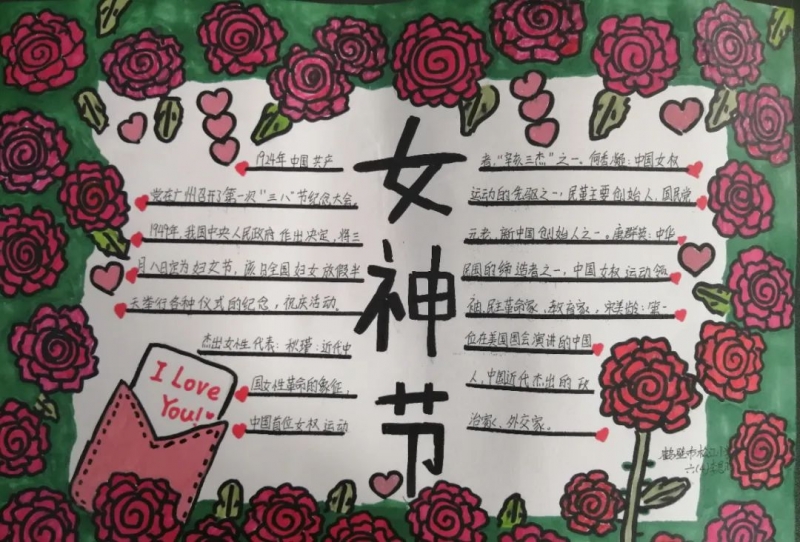 女神节
1924年中国共产
党在广州召开了第一次“三八”节纪念大会。
1949年，我国中央人民政府作出决定，将三
月八日定为妇女节，该日全国妇女放假半
天举行各种仪式的纪念，祝庆活动。
杰出女性代表：秋瑾：近代中
国女性革命的象征，
中国首位女权运动
者，“辛亥三杰”之一。何香凝：中国女权
运动的先驱之一，民革主要创始人，国民党
元老，新中国创始人之一。唐群英：中华
民国的缔造者之一，中国女权运动领
袖，民主革命家、教育家。宋美龄：第一
位在美国国会演讲的中国
人，中国近代杰出的政
治家、外交家。
I Love
You!
鹤壁市